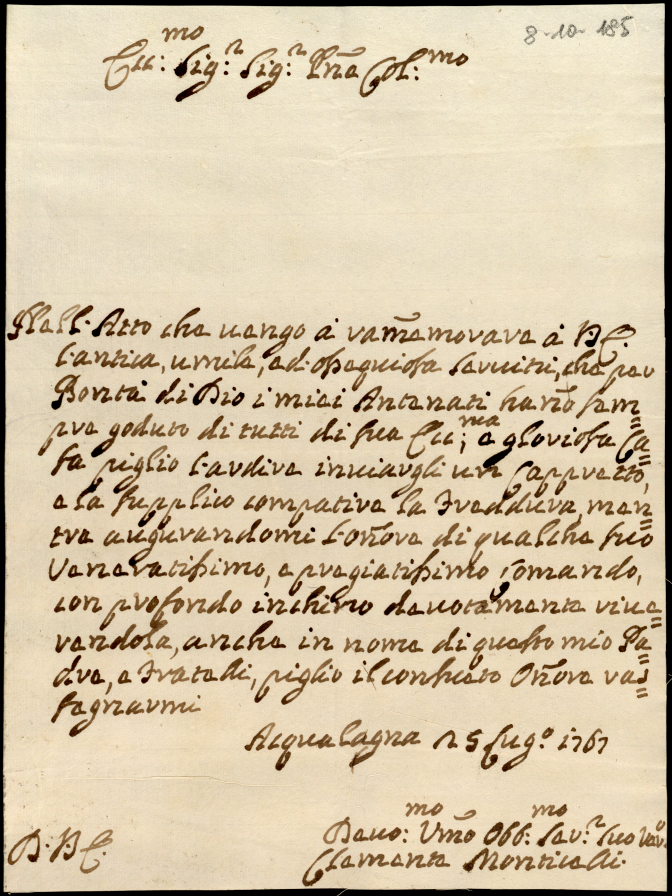 8-10-185
Ecc:mo Sig:r Sig:r Prñe Col:mo
Nell'Atto che vengo à ram̃emorare à V.E.
l'antica, umile, ed ossequiosa servitù, che per
Bontà di Dio i miei Antenati han̄o sem=
pre goduto di tutti di sua Ecc:ma e gloriosa Ca=
sa piglio l'ardire inviargli un Cappretto,
e la supplico compatire la Freddura, men=
tre augurandomi l'on̄ore di qualche suo
Veneratissimo, e pregiatissimo Comando,
con profondo inchino devotamente rive=
rendola, anche in nome di questo mio Pa=
dre, e Fratelli, piglio il consueto On̄ore ras=
segnarmi
Acqualagna 25 Lug.o 1767
D. V. E.
Devo:mo Vm̃o Obb:mo Ser:r Suo Vero
Clemente Monticelli